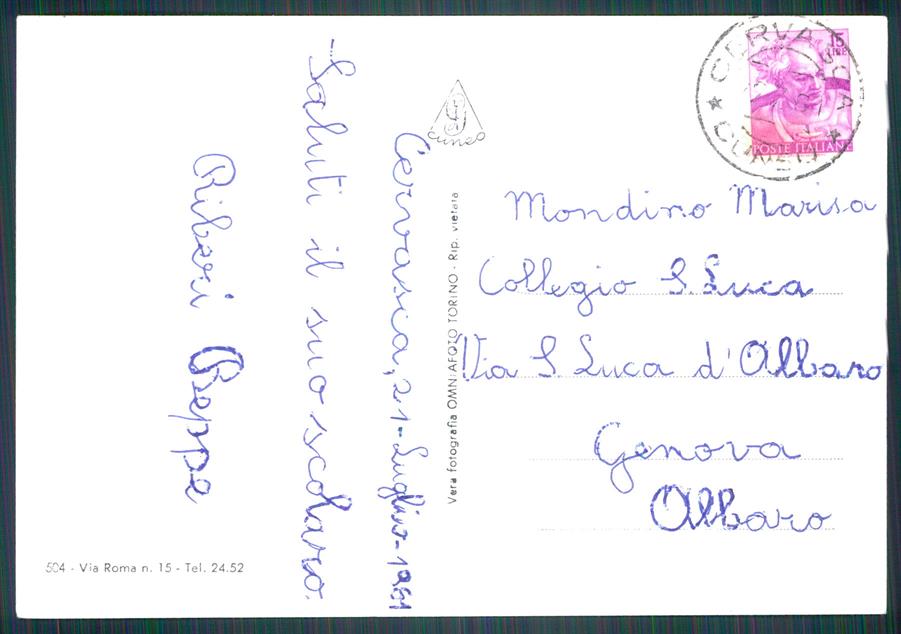 Cervasca, 21-Luglio-1961
-Saluti il suo scolaro
Riberi Beppe
CUNEO
Vera fotografia OMNIAFOTO TORINO - Rip. vietata
504 - Via Roma n. 15 - Tel. 24.52
CERVASCA
CUNEO
15
LIRE
POSTE ITALIANE
Mondino Marisa
Collegio S. Luca
Via S. Luca d'Albaro
Genova
Albaro